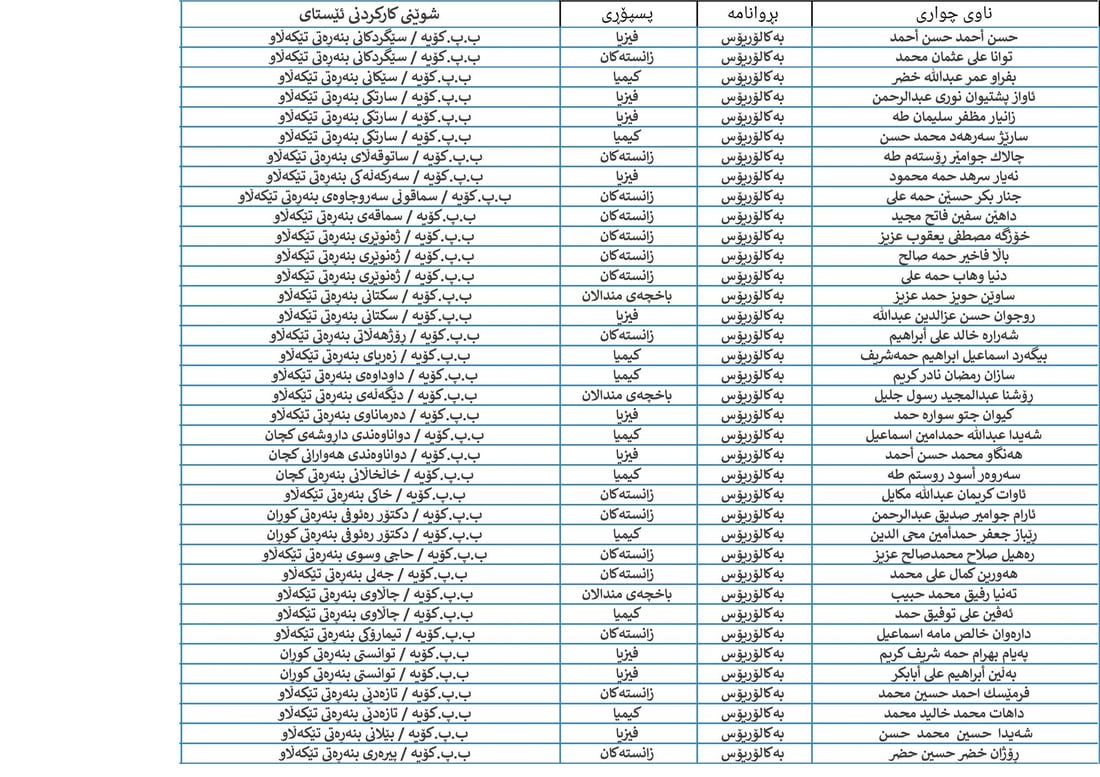 ناوی چواری بڕوانامە پسپۆڕی شوێنی کارکردنی ئێستای
حسن أحمد حسن أحمد بەکالۆریۆس فیزیا ب.پ.کۆیە / سێگردکانی بنەڕەتی تێکەڵاو
توانا علی عثمان محمد بەکالۆریۆس زانستەکان ب.پ.کۆیە / سێگردکانی بنەڕەتی تێکەڵاو
بفراو عمر عبداللە خضر بەکالۆریۆس کیمیا ب.پ.کۆیە / سێکانی بنەڕەتی تێکەڵاو
ئاواز پشتیوان نوری عبدالرحمن بەکالۆریۆس فیزیا ب.پ.کۆیە / سارتکی بنەڕەتی تێکەڵاو
زانیار مظفر سلیمان طە بەکالۆریۆس فیزیا ب.پ.کۆیە / سارتکی بنەڕەتی تێکەڵاو
سارێژ سەرهەد محمد حسن بەکالۆریۆس کیمیا ب.پ.کۆیە / سارتکی بنەڕەتی تێکەڵاو
چالاك جوامێر رۆستەم طە بەکالۆریۆس زانستەکان ب.پ.کۆیە / ساتوقەڵای بنەڕەتی تێکەڵاو
نەیار سرهد حمە محمود بەکالۆریۆس فیزیا ب.پ.کۆیە / سەرکەڵەکی بنەڕەتی تێکەڵاو
جنار بکر حسێن حمە علی بەکالۆریۆس زانستەکان ب.پ.کۆیە / سماقوڵی سەروچاوەی بنەڕەتی تێکەڵاو
داهێن سفین فاتح مجید بەکالۆریۆس زانستەکان ب.پ.کۆیە / سماقەی بنەڕەتی تێکەڵاو
خۆزگە مصطفی یعقوب عزیز بەکالۆریۆس زانستەکان ب.پ.کۆیە / ژەنوێری بنەڕەتی تێکەڵاو
باڵا فاخیر حمە صالح بەکالۆریۆس زانستەکان ب.پ.کۆیە / ژەنوێری بنەڕەتی تێکەڵاو
دنیا وهاب حمە علی بەکالۆریۆس زانستەکان ب.پ.کۆیە / ژەنوێری بنەڕەتی تێکەڵاو
ساوێن حویز حمد عزیز بەکالۆریۆس باخچەی مندالان ب.پ.کۆیە / سکتانی بنەڕەتی تێکەڵاو
روجوان حسن عزالدین عبداللە بەکالۆریۆس فیزیا ب.پ.کۆیە / سکتانی بنەڕەتی تێکەڵاو
شەرارە خالد علی أبراهیم بەکالۆریۆس زانستەکان ب.پ.کۆیە / ڕۆژهەڵاتی بنەڕەتی تێکەڵاو
بیگەرد اسماعیل ابراهیم حمەشریف بەکالۆریۆس کیمیا ب.پ.کۆیە / زەریای بنەڕەتی تێکەڵاو
سازان رمضان نادر کریم بەکالۆریۆس کیمیا ب.پ.کۆیە / داوداوەی بنەڕەتی تێکەڵاو
ڕۆشنا عبدالمجید رسول جلیل بەکالۆریۆس باخچەی مندالان ب.پ.کۆیە / دێگەڵەی بنەڕەتی تێکەڵاو
کیوان جتو سوارە حمد بەکالۆریۆس فیزیا ب.پ.کۆیە / دەرماناوی بنەڕەتی تێکەڵاو
شەیدا عبداللە حمدامین اسماعیل بەکالۆریۆس کیمیا ب.پ.کۆیە / دواناوەندی داروشەی کچان
هەنگاو محمد حسن أحمد بەکالۆریۆس فیزیا ب.پ.کۆیە / دواناوەندی هەوارانی کچان
سەروەر أسود روستم طە بەکالۆریۆس کیمیا ب.پ.کۆیە / خاڵخاڵانی بنەڕەتی کچان
ئاوات کریمان عبداللە مکایل بەکالۆریۆس زانستەکان ب.پ.کۆیە / خاکی بنەڕەتی تێکەڵاو
ئارام جوامیر صدیق عبدالرحمن بەکالۆریۆس زانستەکان ب.پ.کۆیە / دکتۆر رەئوفی بنەڕەتی کوڕان
رێباز جعفر حمدأمین محی الدین بەکالۆریۆس کیمیا ب.پ.کۆیە / دکتۆر رەئوفی بنەڕەتی کوڕان
رەهیل صلاح محمدصالح عزیز بەکالۆریۆس زانستەکان ب.پ.کۆیە / حاجی وسوی بنەڕەتی تێکەڵاو
هەورین کمال علی محمد بەکالۆریۆس زانستەکان ب.پ.کۆیە / جەلی بنەڕەتی تێکەڵاو
تەنیا رفیق محمد حبیب بەکالۆریۆس باخچەی مندالان ب.پ.کۆیە / چاڵاوی بنەڕەتی تێکەڵاو
ئەڤین علی توفیق حمد بەکالۆریۆس کیمیا ب.پ.کۆیە / چاڵاوی بنەڕەتی تێکەڵاو
دارەوان خالص مامە اسماعیل بەکالۆریۆس زانستەکان ب.پ.کۆیە / تیمارۆکی بنەڕەتی تێکەڵاو
پەیام بهرام حمە شریف کریم بەکالۆریۆس فیزیا ب.پ.کۆیە / توانستی بنەڕەتی کوڕان
بەڵێن أبراهیم علی أبابکر بەکالۆریۆس فیزیا ب.پ.کۆیە / توانستی بنەڕەتی کوڕان
فرمێسك احمد حسین محمد بەکالۆریۆس زانستەکان ب.پ.کۆیە / تازەدێی بنەڕەتی تێکەڵاو
داهات محمد خالید محمد بەکالۆریۆس کیمیا ب.پ.کۆیە / تازەدێی بنەڕەتی تێکەڵاو
شەیدا حسین محمد حسن بەکالۆریۆس فیزیا ب.پ.کۆیە / بێلانی بنەڕەتی تێکەڵاو
ڕۆژان خضر حسین حضر بەکالۆریۆس زانستەکان ب.پ.کۆیە / پیرەری بنەڕەتی تێکەڵاو